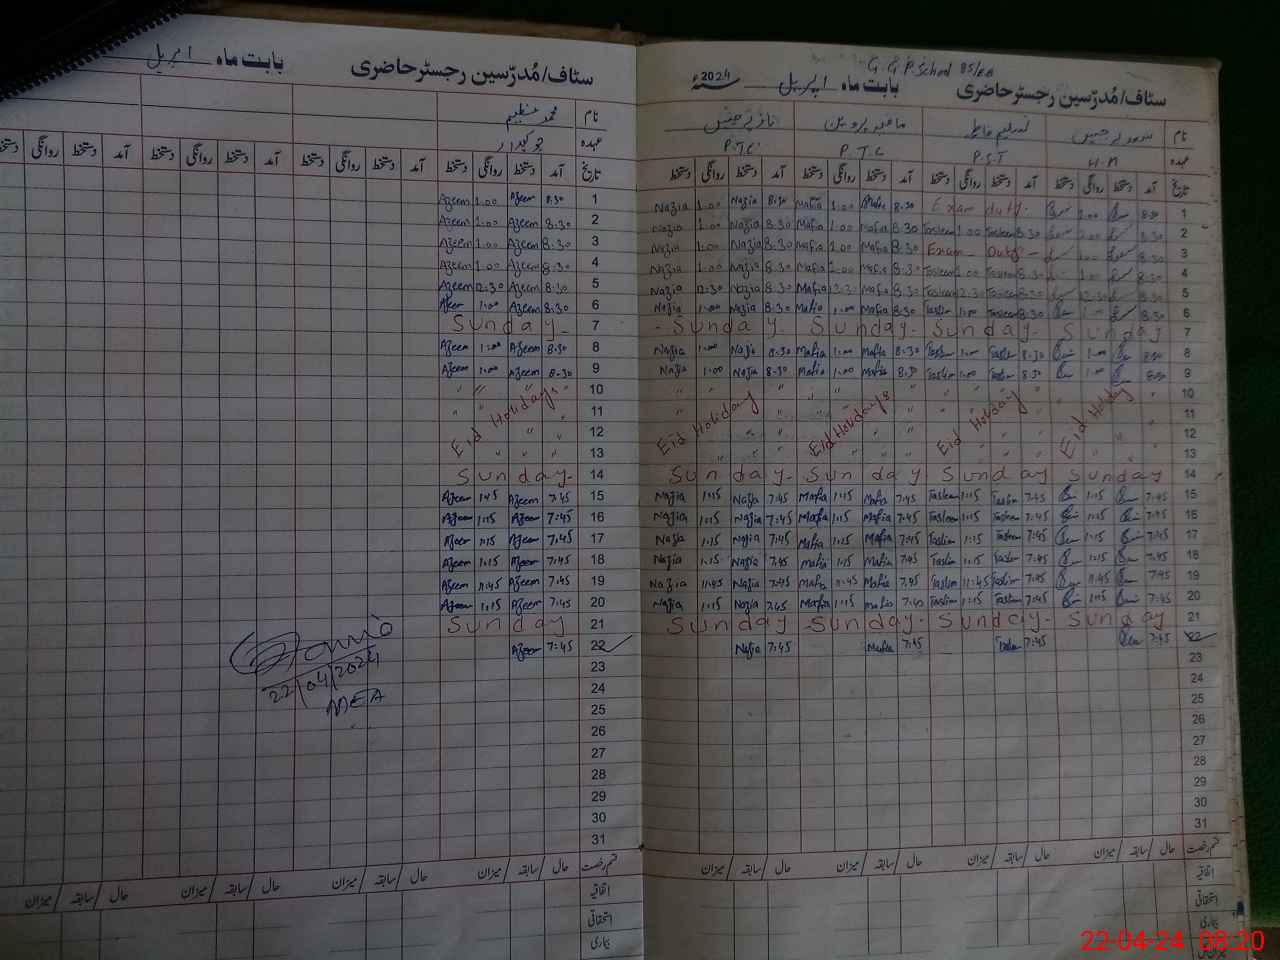 G.G.P.School 85/EB
سٹاف/مُدرّسین رجسٹر حاضری بابت ماہ اپریل سنہ 2024
نام
عہدہ H.M P.S.T P.T.C P.T.C.
تاریخ آمد دستخط روانگی دستخط آمد دستخط روانگی دستخط آمد دستخط روانگی دستخط آمد دستخط روانگی دستخط
1 8:30 1.00 Exam duty. 8.30 Mafia 1.00 Mafia 8.30 Nazia 1.00 Nazia
2 8:30 1.00 8.30 Tasleem 1.00 Tasleem 8.30 Mafia 1.00 Mafia 8.30 Nazia 1.00 Nazia
3 8:30 1.00 Exam Duty 8.30 Mafia 1.00 Mafia 8.30 Nazia 1.00 Nazia
4 8:30 1.00 8.30 Tasleem 1.00 Tasleem 8.30 Mafia 1.00 Mafia 8.30 Nazia 1.00 Nazia
5 8:30 12:30 8:30 Tasleem 12:30 Tasleem 8.30 Mafia 12:30 Mafia 8.30 Nazia 12:30 Nazia
6 8:30 1:00 8:30 Taslim 1:00 Taslim 8.30 Mafia 1:00 Mafia 8.30 Nazia 1:00 Nazia
7 Sunday Sunday Sunday Sunday
8 8:30 1:00 8:30 Taslim 1:00 Taslim 8:30 Mafia 1:00 Mafia 8:30 Nazia 1:00 Nazia
9 8:30 1:00 8:30 Taslim 1:00 Taslim 8:30 Mafia 1:00 Mafia 8:30 Nazia 1:00 Nazia
10
11 Eid Holiday Eid Holiday Eid Holidays Eid Holiday
12
13
14 Sunday Sunday Sunday Sunday
15 7:45 1:15 7:45 Taslim 1:15 Tasleem 7:45 Mafia 1:15 Mafia 7:45 Nazia 1:15 Nazia
16 7:45 1:15 7:45 Taslim 1:15 Tasleem 7:45 Mafia 1:15 Mafia 7:45 Nazia 1:15 Nazia
17 7:45 1:15 7:45 Taslim 1:15 Taslim 7:45 Mafia 1:15 Mafia 7:45 Nazia 1:15 Nazia
18 7:45 1:15 7:45 Taslim 1:15 Taslim 7:45 Mafia 1:15 Mafia 7:45 Nazia 1:15 Nazia
19 7:45 11:45 7:45 Taslim 11:45 Taslim 7:45 Mafia 11:45 Mafia 7:45 Nazia 11:45 Nazia
20 7:45 1:15 7:45 Taslim 1:15 Taslim 7:45 Mafia 1:15 Mafia 7:45 Nazia 1:15 Nazia
21 Sunday Sunday Sunday Sunday
22 7:45 7:45 Taslim 7:45 Mafia 7:45 Nazia
23
24
25
26
27
28
29
30
31
قسم رخصت حال / سابقہ / میزان حال / سابقہ / میزان حال / سابقہ / میزان حال / سابقہ / میزان
اتفاقیہ
استحقاقی
بیماری
سٹاف/مُدرّسین رجسٹر حاضری بابت ماہ اپریل
نام محمد عظیم
عہدہ چوکیدار
تاریخ آمد دستخط روانگی دستخط آمد دستخط روانگی دستخط آمد دستخط روانگی دستخط آمد دستخط روانگی دستخط
1 8.30 Azeem 1.00 Azeem
2 8.30 Azeem 1.00 Azeem
3 8.30 Azeem 1.00 Azeem
4 8.30 Azeem 1.00 Azeem
5 8:30 Azeem 12:30 Azeem
6 8:30 Azeem 1:00 Azeem
7 Sunday
8 8:30 Azeem 1:00 Azeem
9 8:30 Azeem 1:00 Azeem
10
11 Eid Holidays
12
13
14 Sunday
15 7:45 Azeem 1:45 Azeem
16 7:45 Azeem 1:15 Azeem
17 7:45 Azeem 1:15 Azeem
18 7:45 Azeem 1:15 Azeem
19 7:45 Azeem 11:45 Azeem
20 7:45 Azeem 1:15 Azeem
21 Sunday
22 7:45 Azeem
23
24
25
26
27
28
29
30
31
22/04/2024
MEA
قسم رخصت حال / سابقہ / میزان حال / سابقہ / میزان حال / سابقہ / میزان حال / سابقہ / میزان
اتفاقیہ
استحقاقی
بیماری
22-04-24 08:20